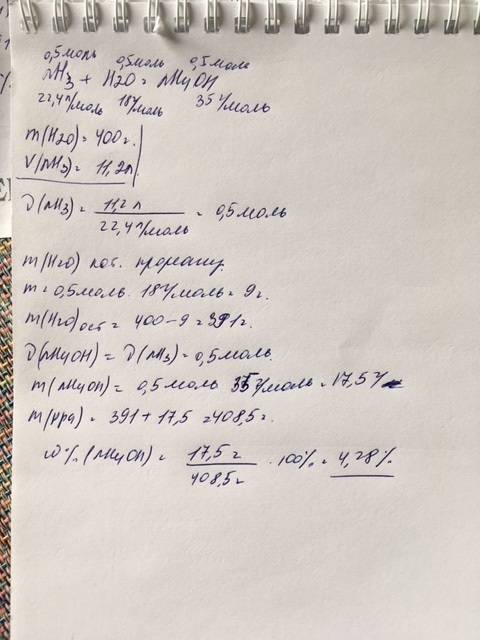 0,5моль 0,5моль 0,5моль
NH3 + H2O = NH4OH
22,4л/моль 18г/моль 35г/моль
m(H2O)= 400г.
V(NH3)= 11,2л.
ν(NH3)= 11,2л / 22,4л/моль = 0,5моль
m(H2O)
m= 0,5моль · 18г/моль = 9г.
m(H2O)ост = 400-9=391г.
ν(NH4OH)= ν(NH3)= 0,5моль.
m(NH4OH)= 0,5моль 35г/моль = 17,5г
m(рра)= 391+17,5=408,5г.
ω%(NH4OH)= 17,5г / 408,5г · 100%= 4,28%